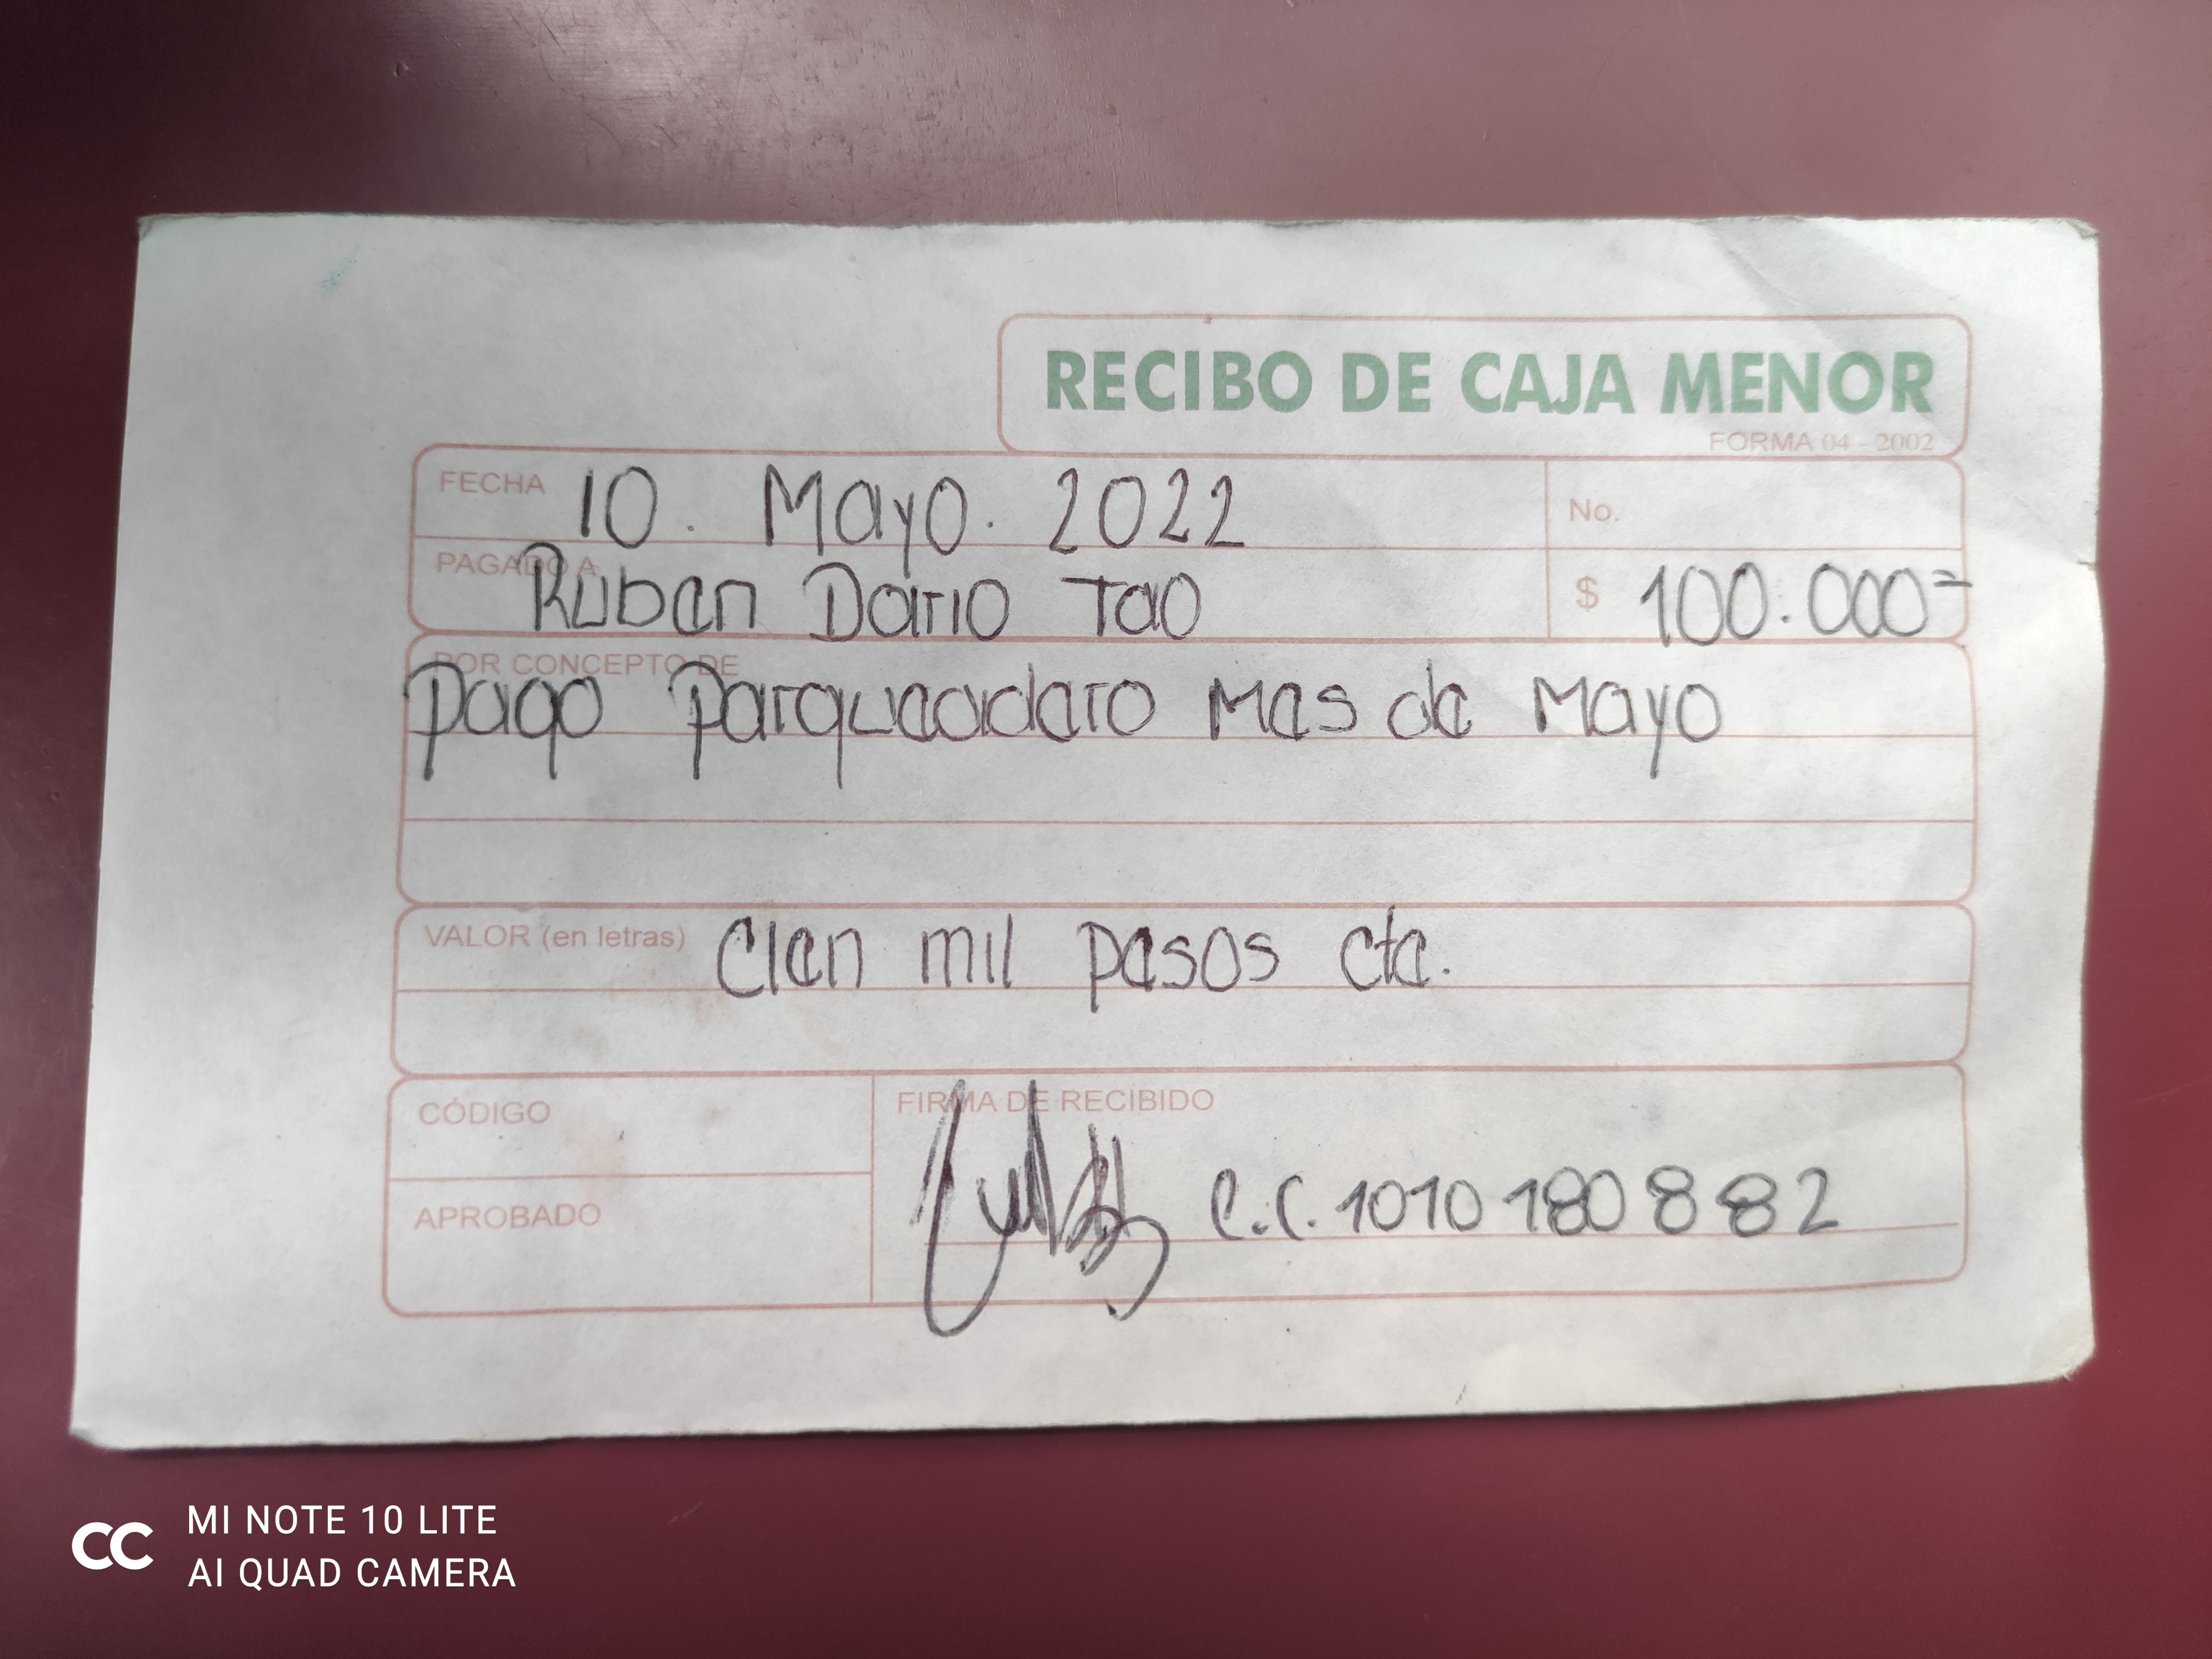 RECIBO DE CAJA MENOR
FORMA 04 - 2002
FECHA 10. Mayo. 2022
No.
PAGADO A Ruben Dario Tao
$ 100.000=
POR CONCEPTO DE
Pago Parqueadero Mes de Mayo
VALOR (en letras) Cien mil pesos cte.
CÓDIGO
FIRMA DE RECIBIDO
C.C. 1010180882
APROBADO
CC MI NOTE 10 LITE
AI QUAD CAMERA